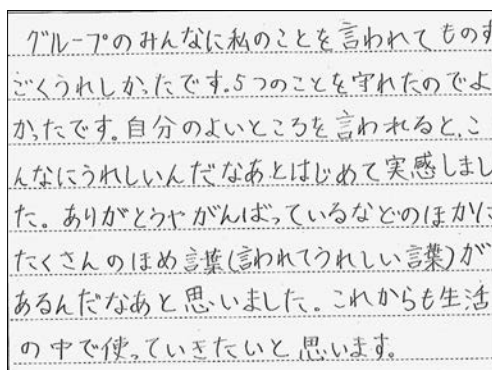 グループのみんなに私のことを言われてものす
ごくうれしかったです。5つのことを守れたのでよ
かったです。自分のよいところを言われると、こ
んなにうれしいんだなあとはじめて実感しまし
た。ありがとうやがんばっているなどのほかに
たくさんのほめ言葉(言われてうれしい言葉)が
あるんだなあと思いました。これからも生活
の中で使っていきたいと思います。